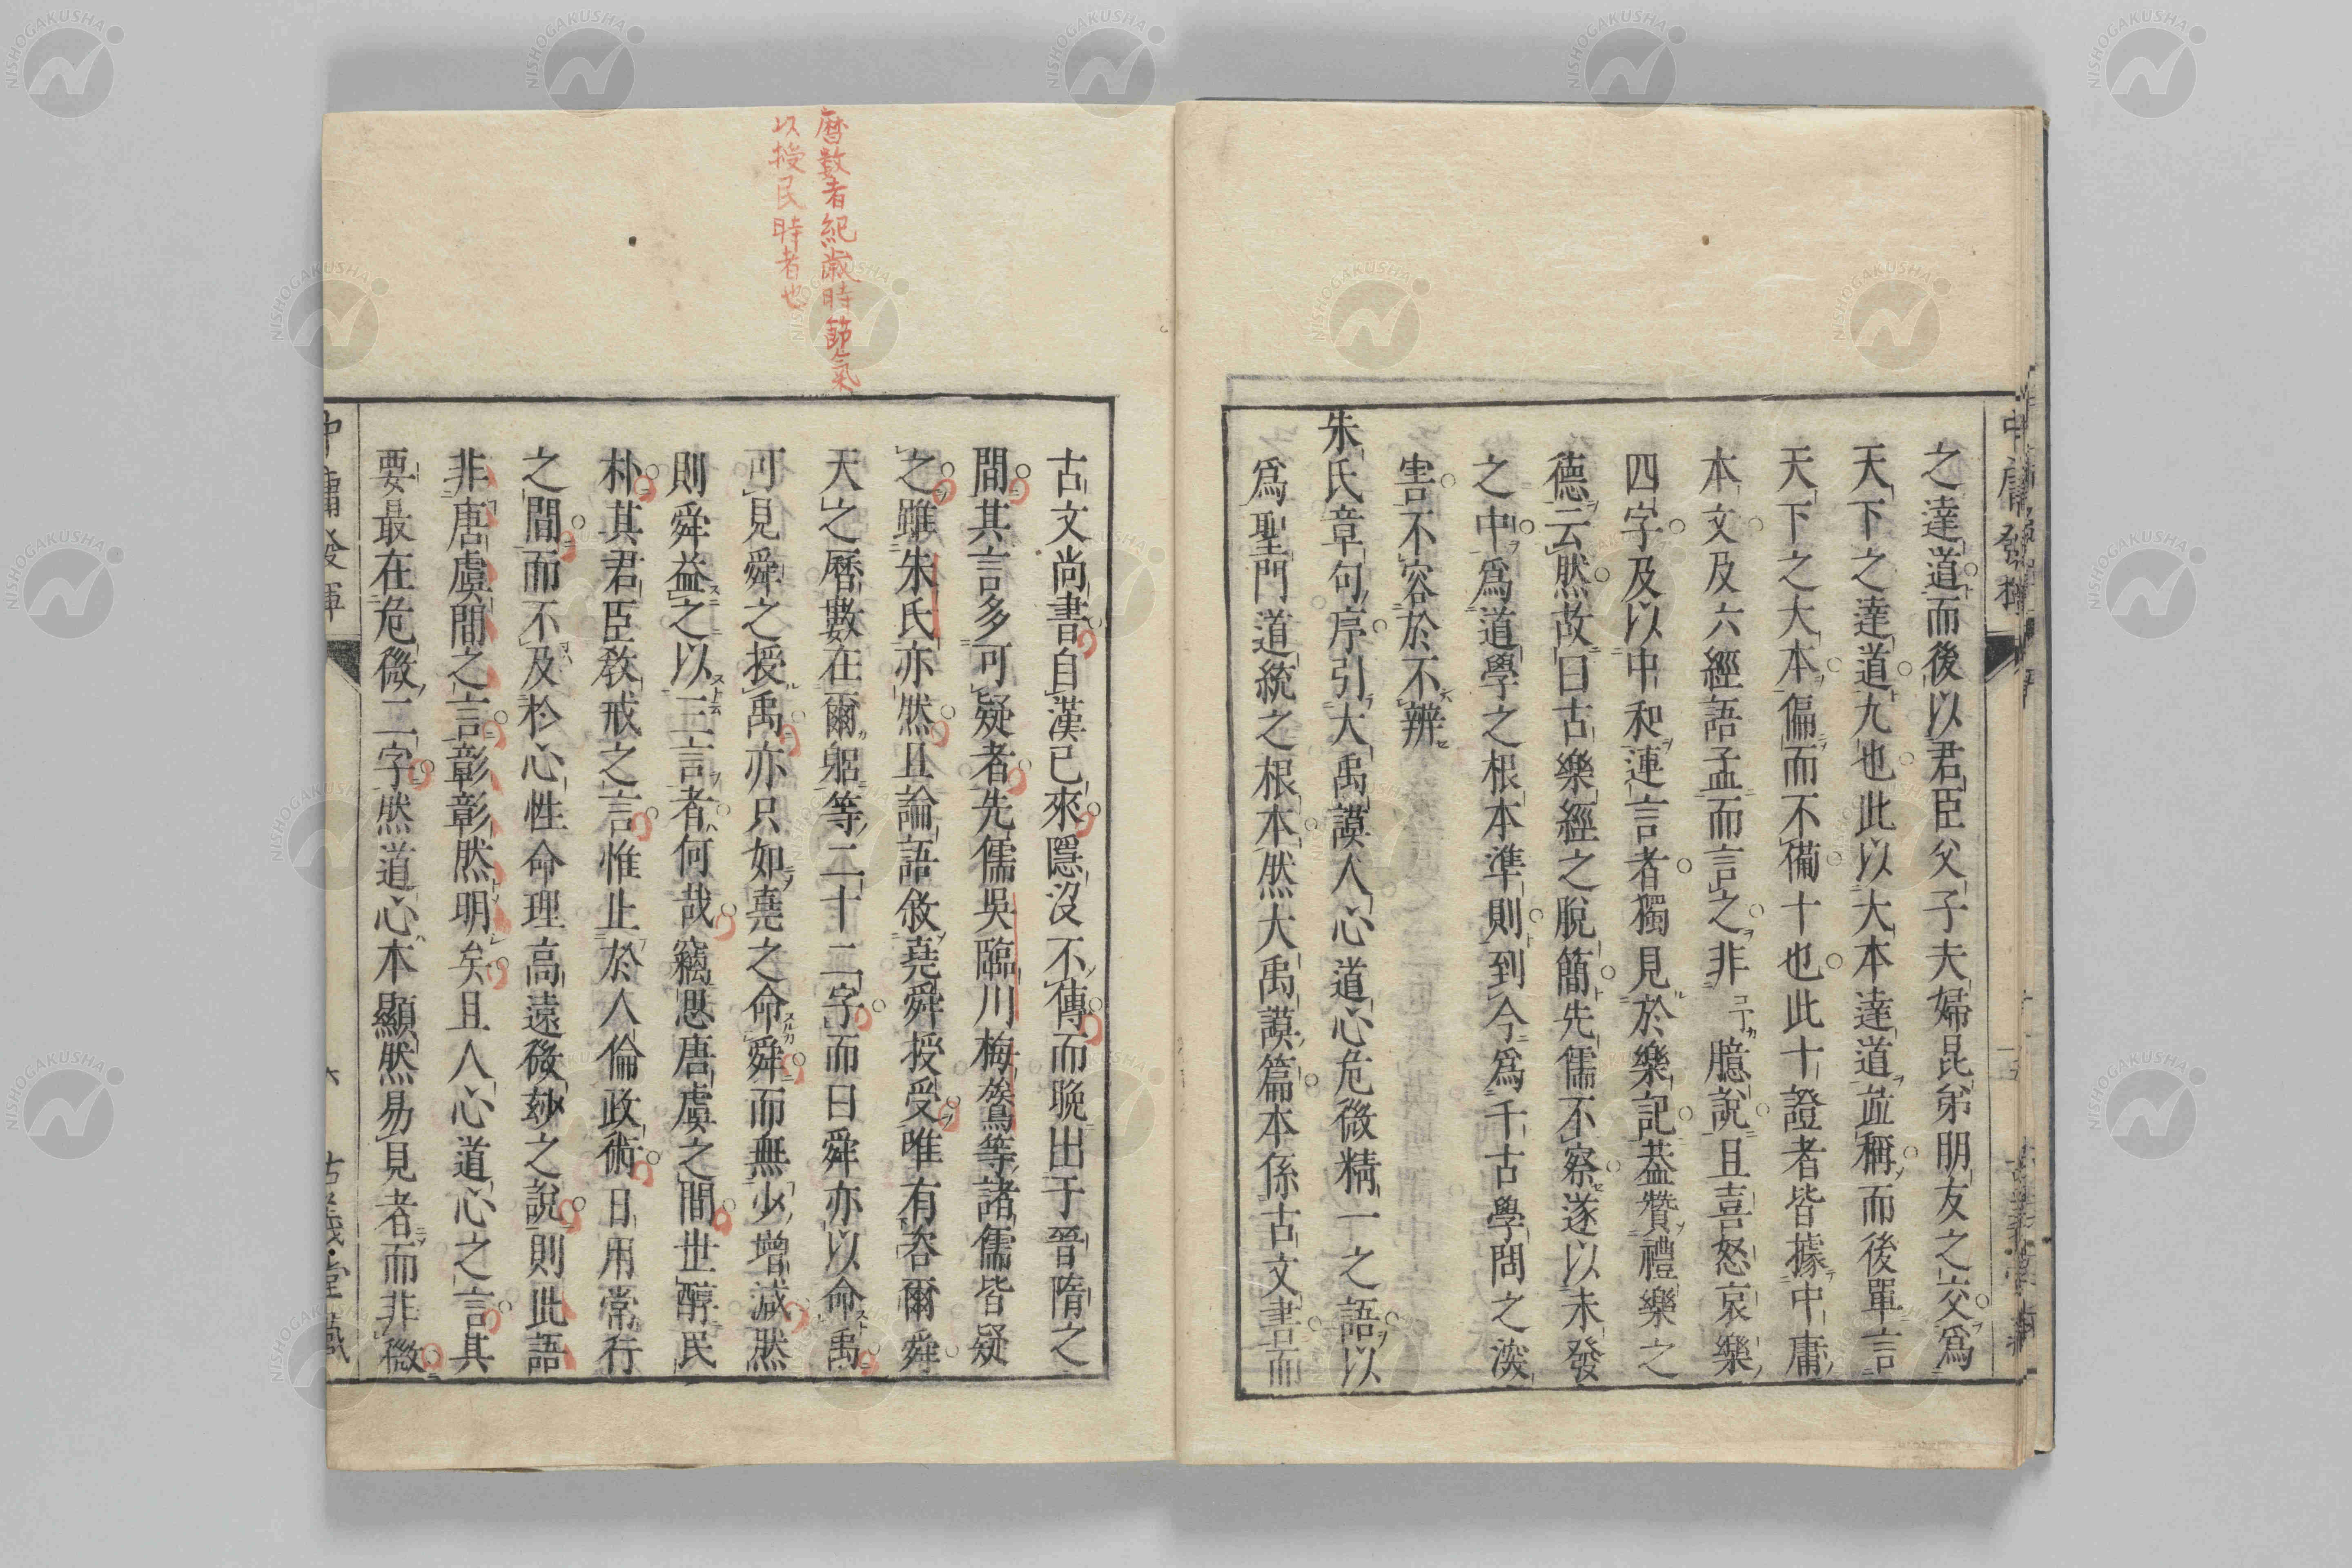 之達道而後以君臣父子夫婦昆弟朋友之交爲
天下之達道九也此以大本達道並稱而後單言
天下之大本偏而不備十也此十證者皆據中庸
本文及六經語孟而言之非臆說且喜怒哀樂
四字及以中和連言者獨見於樂記葢贊禮樂之
德云然故曰古樂經之脫簡先儒不察遂以未發
之中爲道學之根本準則到今爲千古學問之深
害不容於不辨
朱氏章句序引大禹謨人心道心危微精一之語以
爲聖門道統之根本然大禹謨篇本係古文書而
曆數者紀歲時節氣
以授民時者也
古文尚書自漢已來隱沒不傳而晚出于晉隋之
間其言多可疑者先儒吳臨川梅鷟等諸儒皆疑
之雖朱氏亦然且論語敘堯舜授受唯有咨爾舜
天之曆數在爾躬等二十二字而曰舜亦以命禹
可見舜之授禹亦只如堯之命舜而無少增減然
則舜益之以三言者何哉竊思唐虞之間世醇民
朴其君臣敎戒之言惟止於人倫政術日用常行
之間而不及於心性命理高遠微妙之說則此語
非唐虞間之言彰彰然明矣且人心道心之言其
要最在危微二字然道心本顯然易見者而非微
中庸發揮
六
古義堂藏